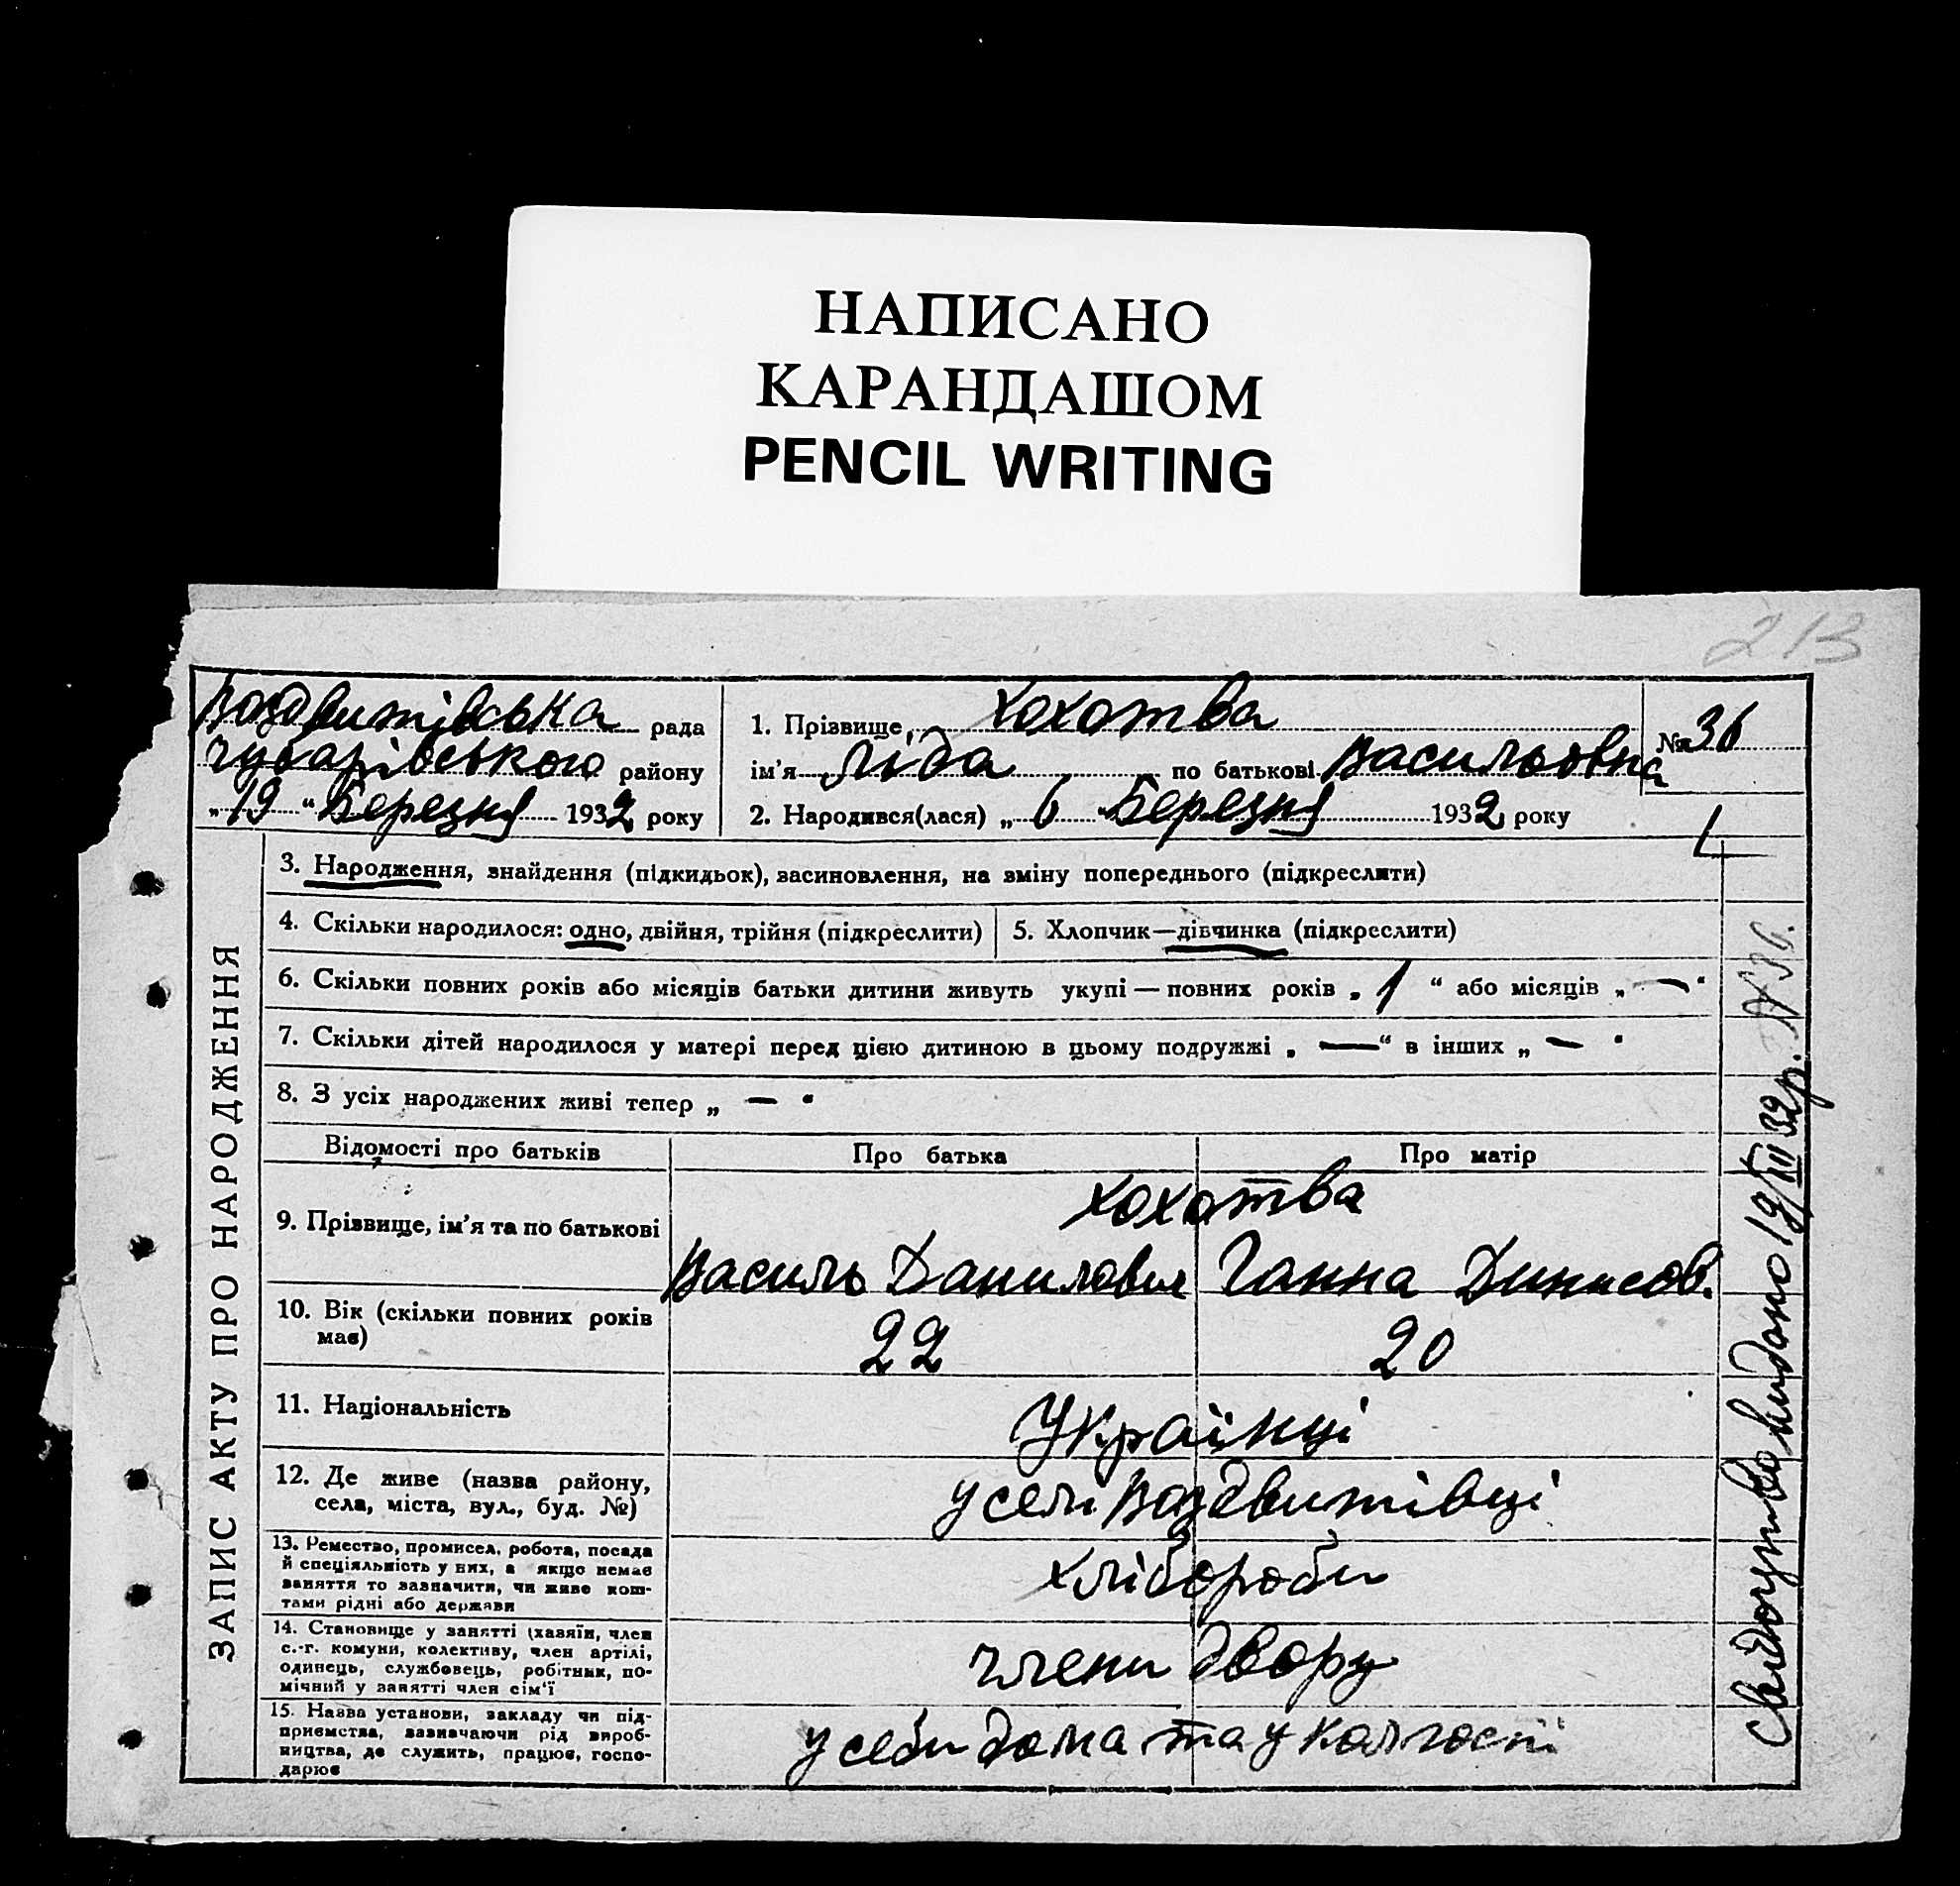 НАПИСАНО
КАРАНДАШОМ
PENCIL WRITING
213
Воздвитівська рада
Чубарівського району
„19“ Березня 1932 року
1. Прізвище Хохотва
ім’я Ліда по батькові Васильовна
2. Народився(лася) „6 Березня 1932 року
№ 36
ЗАПИС АКТУ ПРО НАРОДЖЕННЯ
3. Народження, знайдення (підкидьок), засиновлення, на зміну попереднього (підкреслити)
4. Скільки народилося: одно, двійня, трійня (підкреслити)
5. Хлопчик—дівчинка (підкреслити)
6. Скільки повних років або місяців батьки дитини живуть укупі — повних років „ 1 “ або місяців „ — “
7. Скільки дітей народилося у матері перед цією дитиною в цьому подружжі „ — “ в інших „ — “
8. З усіх народжених живі тепер „ — “
Відомості про батьків
Про батька
Про матір
9. Прізвище, ім’я та по батькові
Хохотва
Василь Данилович
Ганна Динисов.
10. Вік (скільки повних років
має)
22
20
11. Національність
Українці
12. Де живе (назва району,
села, міста, вул., буд. №)
у селі Воздвитівці
13. Ремество, промисел, робота, посада
й спеціяльність у них, а якщо немає
заняття то зазначити, чи живе кош-
тами рідні або держави
хлібороби
14. Становище у занятті (хазяїн, член
с.-г. комуни, колективу, член артілі,
одинець, службовець, робітник, по-
мічний у занятті член сім’ї
члени двору
15. Назва установи, закладу чи під-
приємства, зазначаючи рід вироб-
ництва, де служить, працює, госпо-
дарює
у себи дома та у колгоспі
Свідоцтво видано 19/III 32 р. № 36.